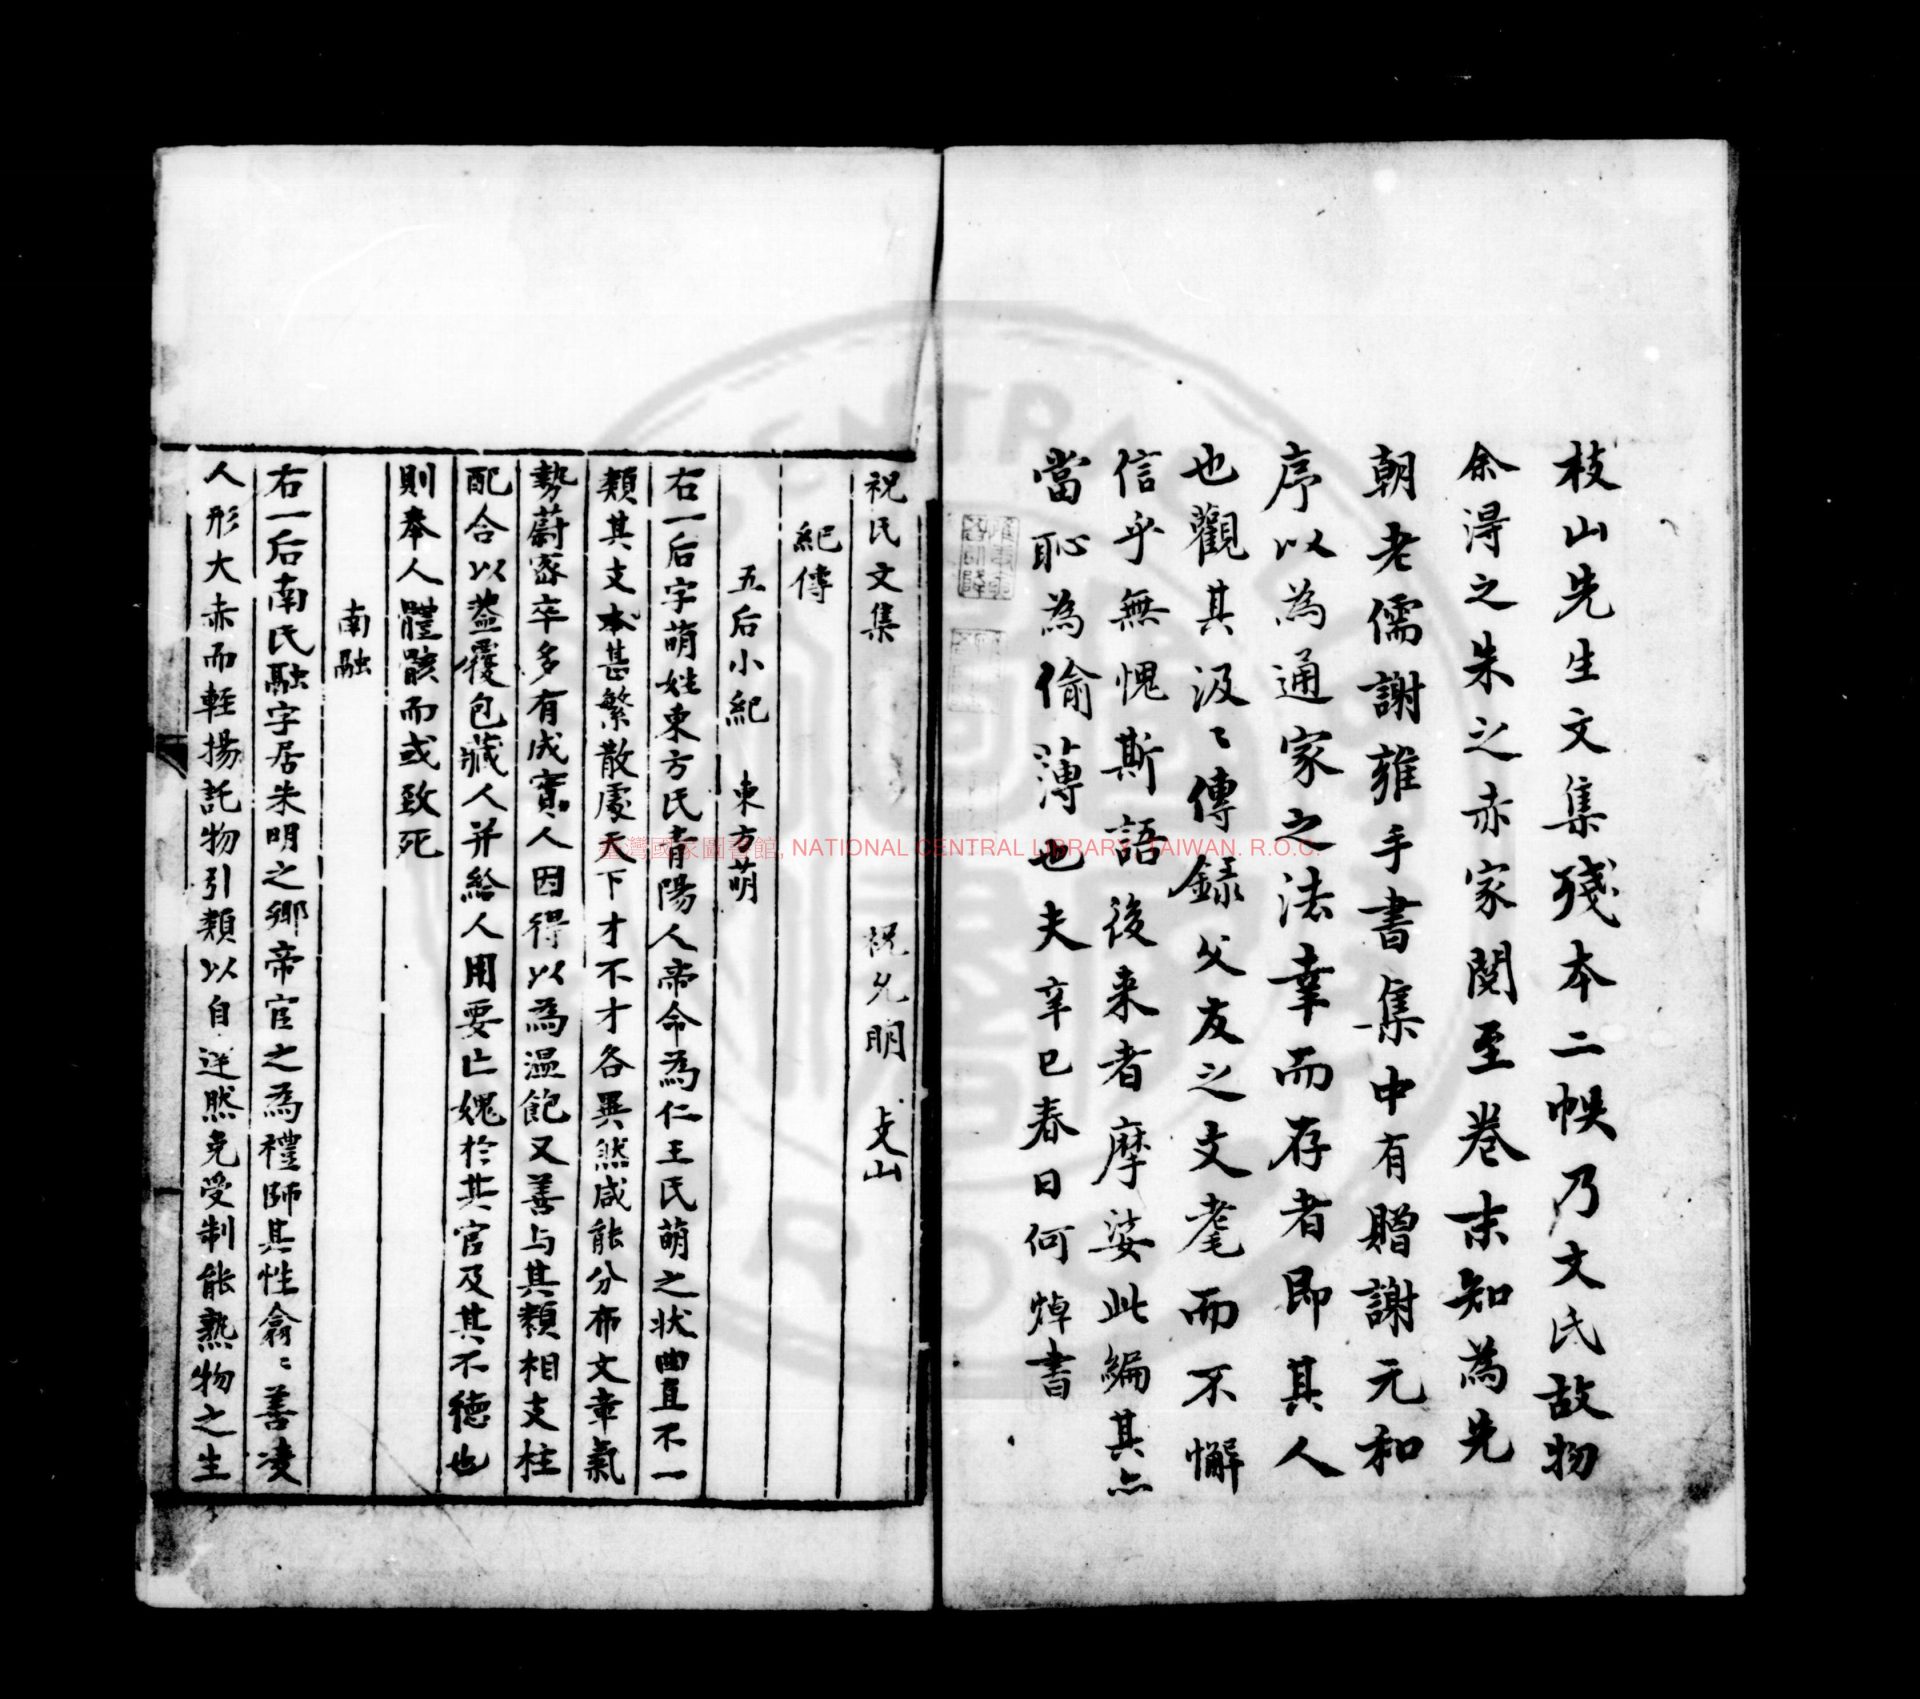 枝山先生文集殘本二帙乃文氏故物
余得之朱之赤家閱至卷末知為先
朝老儒謝雍手書集中有贈謝元和
序以為通家之法幸而存者即其人
也觀其汲〻傳錄父友之文耄而不懈
信乎無愧斯語後来者摩娑此編其亦
當恥為偷薄也夫辛巳春日何焯書
祝氏文集 祝允明 攴山
紀傳
五后小紀 東方萌
右一后字萌姓東方氏青陽人帝命為仁王氏萌之状曲直不一
類其支本甚繁散處天下才不才各異然咸能分布文章氣
勢蔚密卒多有成實人因得以為温飽又善与其類相支柱
配合以盖覆包藏人并給人用要亡媿於其官及其不德也
則奉人體骸而或致死
南融
右一后南氏融字居朱明之鄉帝官之為禮師其性翕〻善凌
人形大赤而輕揚託物引類以自逞然克受制能熟物之生
臺灣國家圖書館, NATIONAL CENTRAL LIBRARY, TAIWAN. R.O.C.